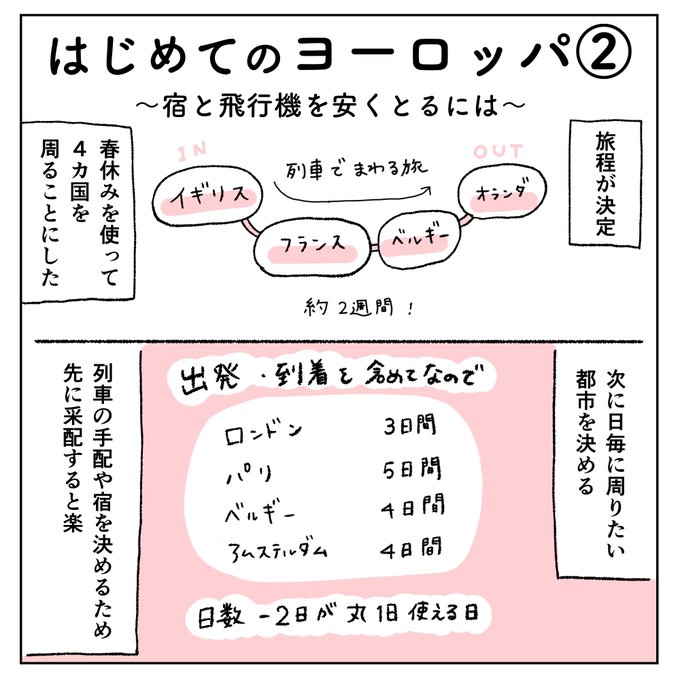 はじめてのヨーロッパ②
～宿と飛行機を安くとるには～
旅程が決定
IN
列車でまわる旅
OUT
イギリス
フランス
ベルギー
オランダ
約2週間!
春休みを使って
4カ国を
周ることにした
次に日毎に周りたい
都市を決める
出発・到着を含めてなので
ロンドン 3日間
パリ 5日間
ベルギー 4日間
アムステルダム 4日間
日数-2日が丸1日使える日
列車の手配や宿を決めるため
先に采配すると楽